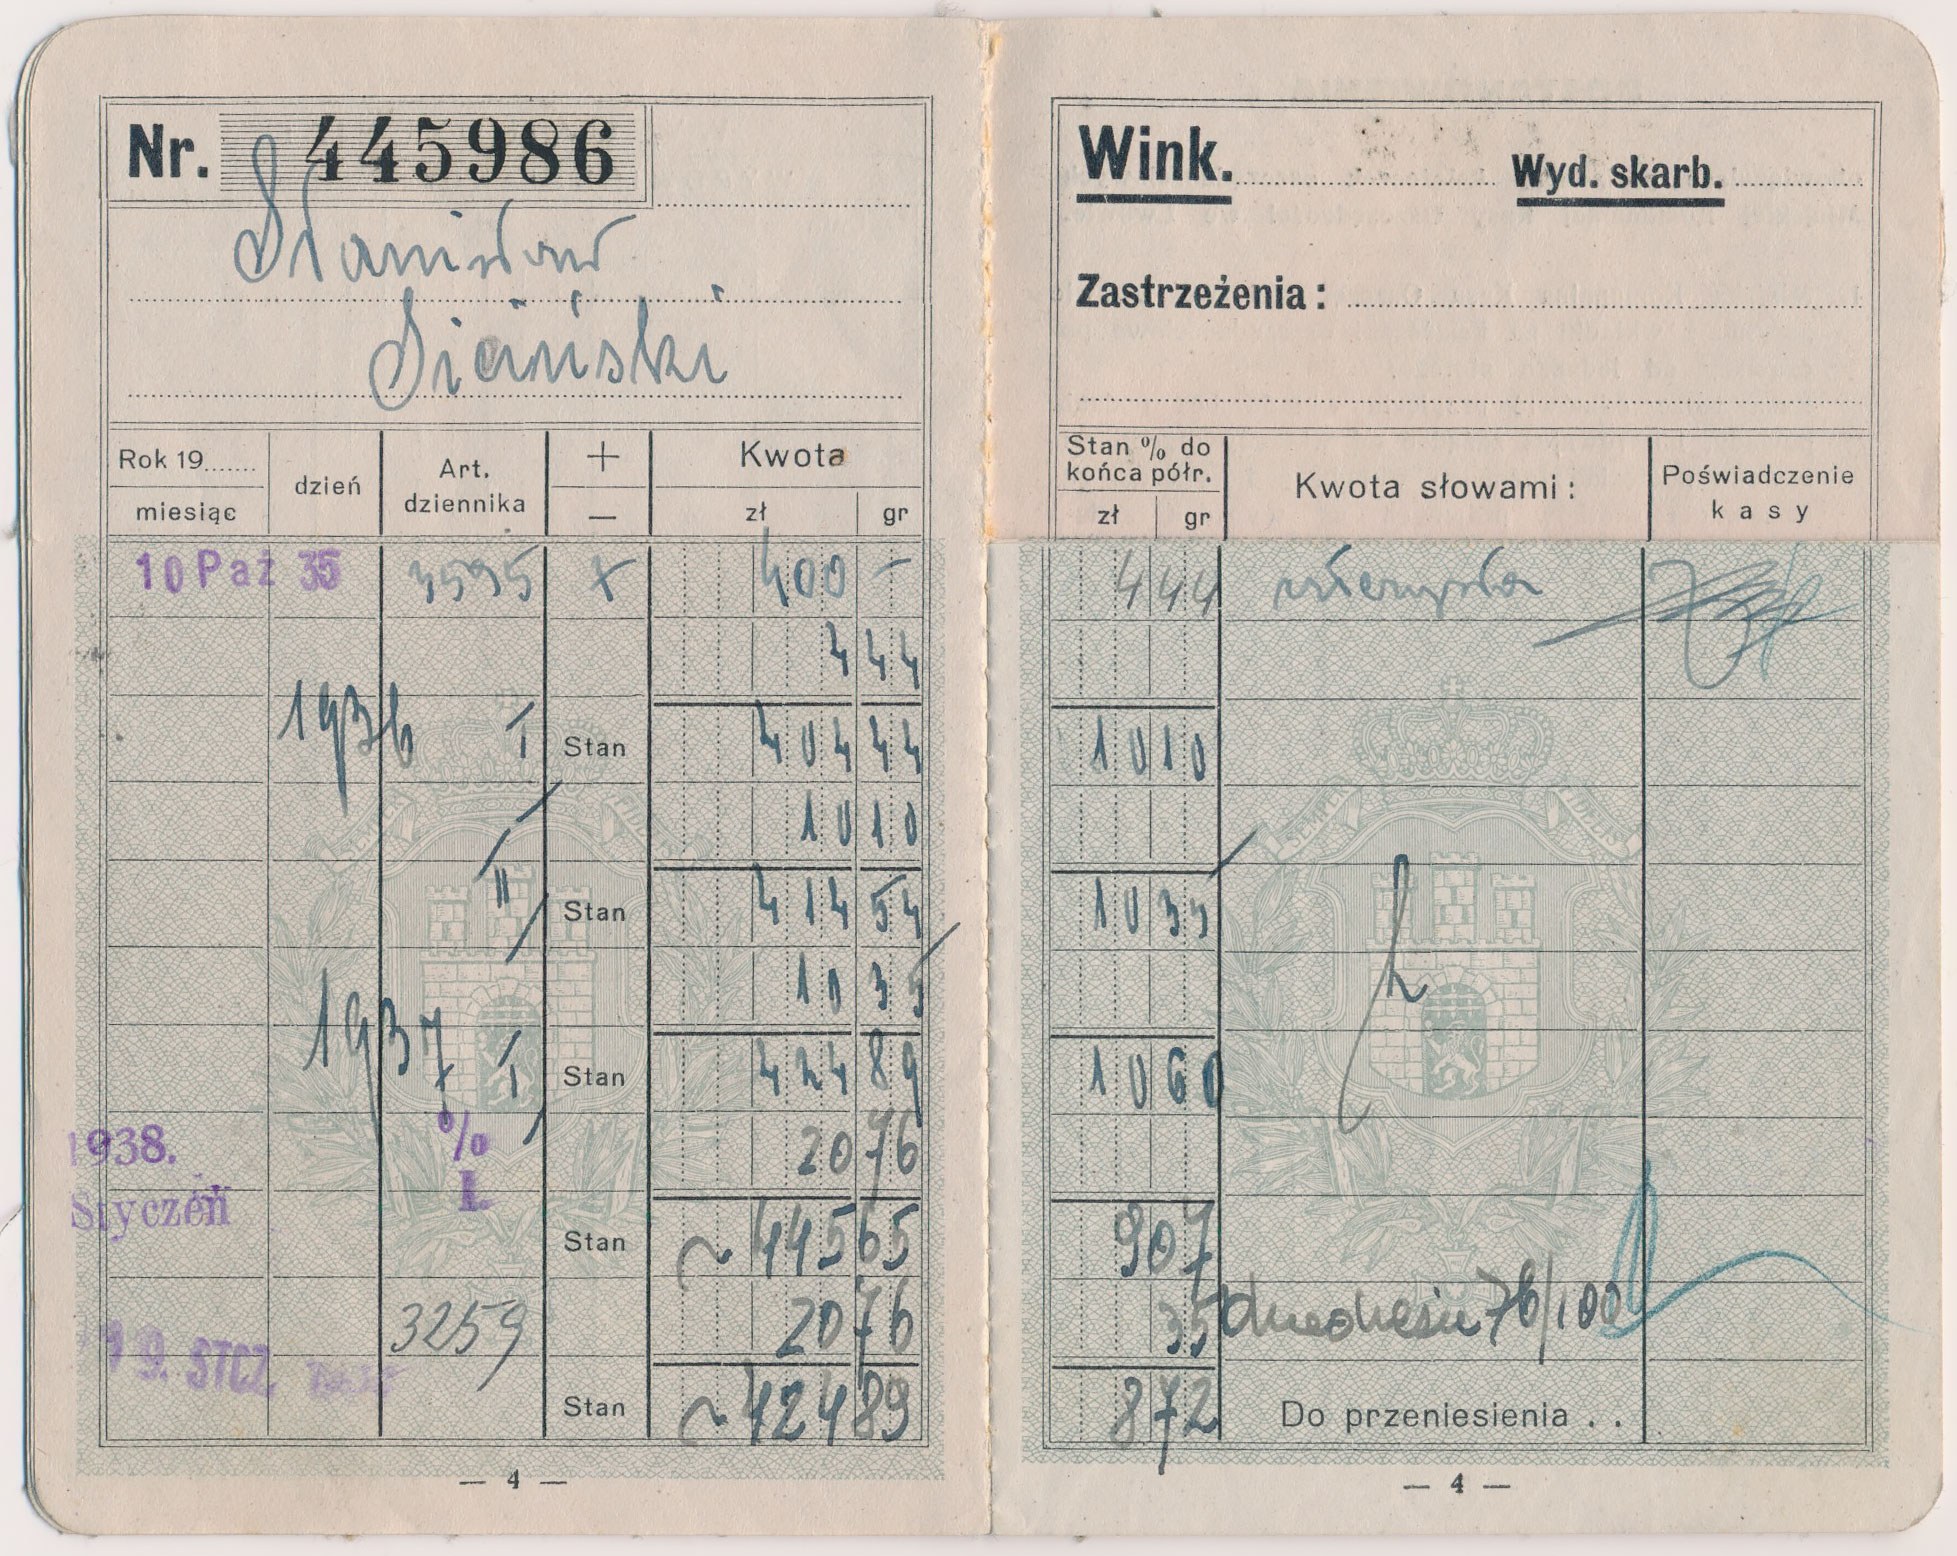 Nr. 445986
Stanisław
Siciński
Rok 19....... miesiąc dzień Art. dziennika + — Kwota zł gr
10 Paź 35 3595 + 400 –
4 44
1936 I Stan 404 44
10 10
II Stan 414 54
10 35
1937 I Stan 424 89
1938. % 20 76
Styczeń I. Stan ~ 445 65
3259 20 76
19. STCZ.
Stan ~ 424 89
— 4 —
Wink. Wyd. skarb.
Zastrzeżenia :
Stan % do końca półr. zł gr Kwota słowami : Poświadczenie kasy
4 44 czterysta
10 10
SEMPER FIDELIS
10 35
10 60
9 07
35 dwadzieścia 76/100
8 72 Do przeniesienia . .
— 4 —